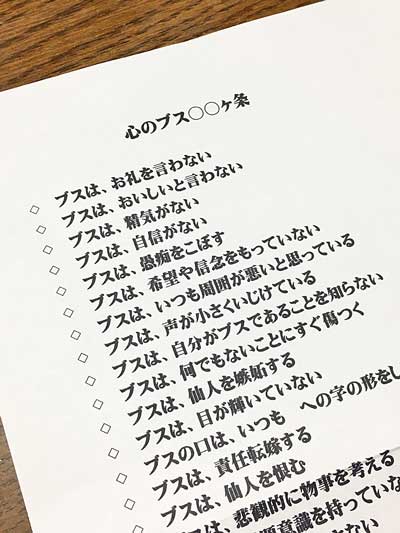 心のブス○○ヶ条
◇ ブスは、お礼を言わない
◇ ブスは、おいしいと言わない
◇ ブスは、精気がない
◇ ブスは、自信がない
◇ ブスは、愚痴をこぼす
◇ ブスは、希望や信念をもっていない
◇ ブスは、いつも周囲が悪いと思っている
◇ ブスは、声が小さくいじけている
◇ ブスは、自分がブスであることを知らない
◇ ブスは、何でもないことにすぐ傷つく
◇ ブスは、仙人を嫉妬する
◇ ブスは、目が輝いていない
◇ ブスの口は、いつも への字の形をし
◇ ブスは、責任転嫁する
◇ ブスは、仙人を恨む
ブスは、悲観的に物事を考える
意識を持っていな
ない